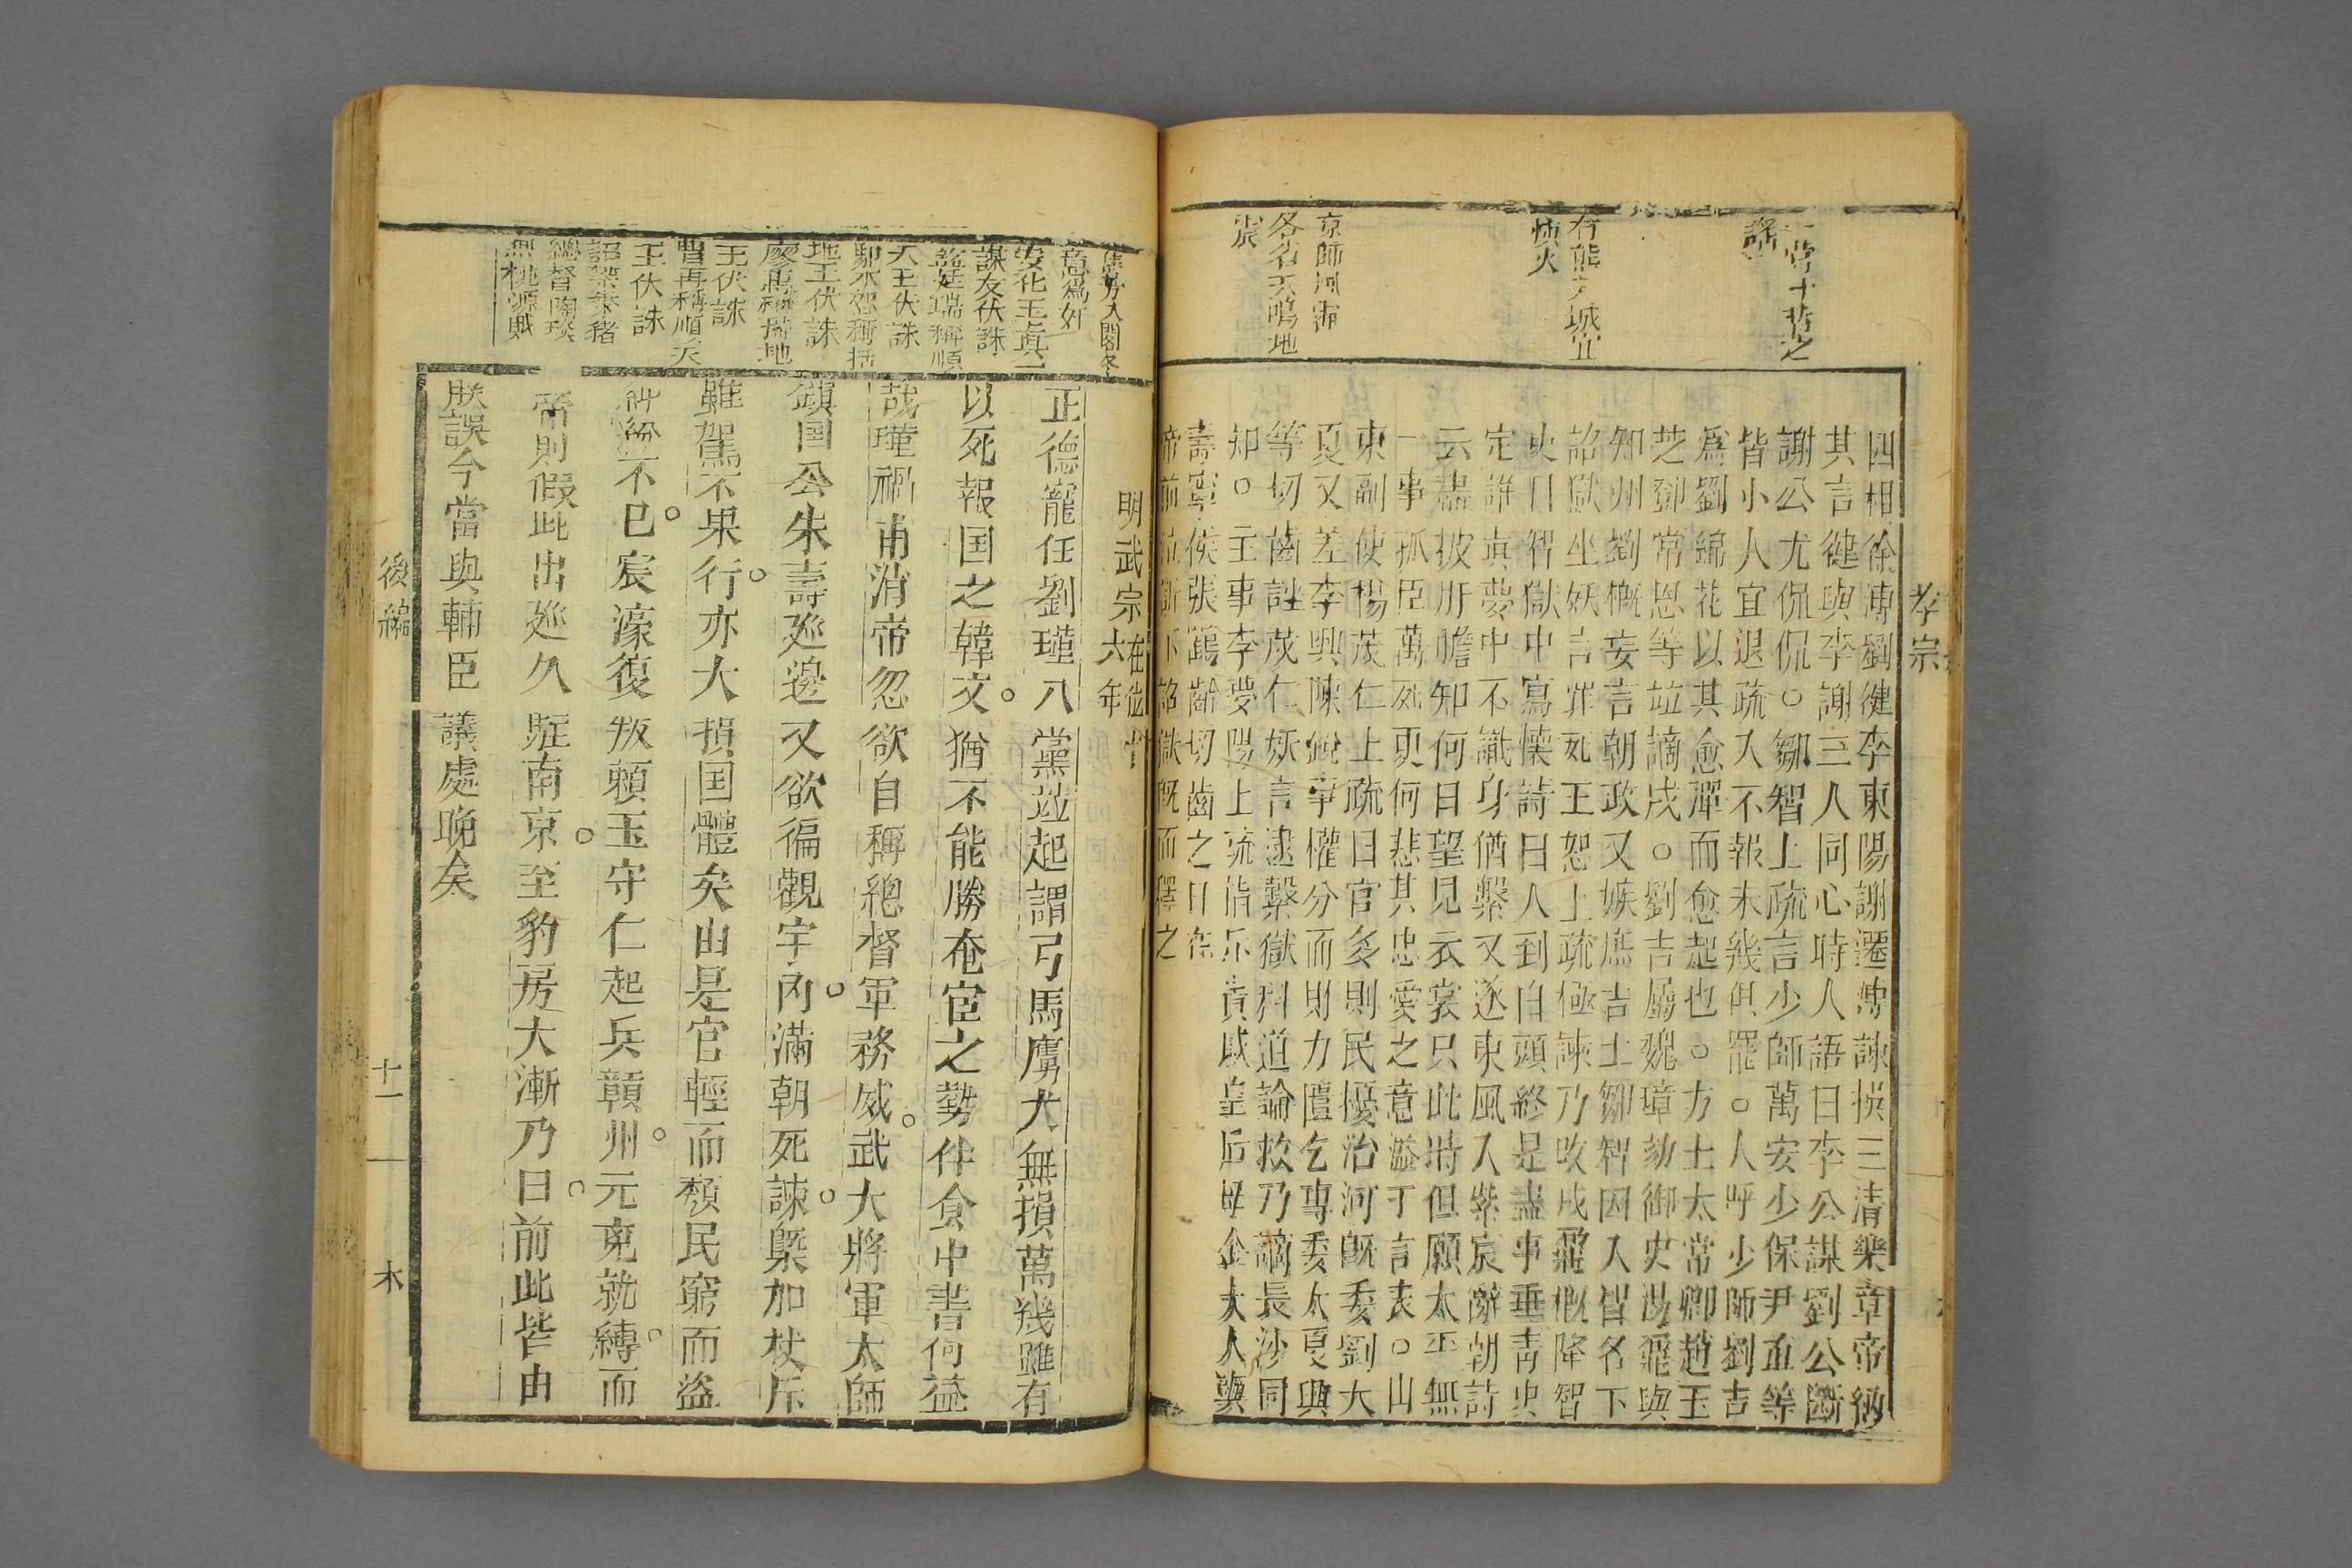 孝宗
一當十貫之
謠
有熊入城宜
愼火
京師風霾
各省天鳴地
震
四相徐溥劉健李東陽謝遷㫼詠撰三清樂章帝納
其言健與李謝三人同心時人語曰李公謀劉公斷
謝公尤侃侃○鄒智上疏言少師萬安少保尹直等
皆小人宜退疏入不報未幾俱罷○人呼少師劉吉
爲劉綿花以其愈彈而愈起也○方士太常卿趙玉
芝鄧常恩等竝謫戍○劉吉屬魏璋劾御史湯鼐與
知州劉概妄言朝政又嫉庶吉士鄒智因入智名下
詔獄坐妖言罪死王恕上疏極諫乃改戍鼐概降智
史目智獄中寫懷詩曰人到白頭終是盡事垂靑史
定誰眞夢中不識身猶繫又逐東風入紫宸辭朝詩
云盡披肝膽知何日望見衣裳只此時但願太平無
一事孤臣萬死更何悲其忠愛之意溢于言表○山
東副使楊茂仁上疏曰官多則民擾治河旣委劉大
夏又差李興陳銳事懽分而財力匱乞專委太夏興
等切齒誣茂仁妖言逮繫獄科道論救乃謫長沙同
知○主事李夢陽上疏指斥貴戚皇后母金夫人與
壽寧侯張鶴齡切齒之日在
帝前泣訴下詔獄旣而釋之
明武宗在位十六年
焦芳入閣
意爲奸
安化王眞
謀友伏誅
藍廷瑞稱順
天王伏誅
鄢本恕稱括
地王伏誅
廖惠稱掃地
王伏誅
曹再稱順天
王伏誅
詔禁朱豬
總督陶琰
無桃源賊
正德寵任劉瑾八黨竝起謂弓馬鷹犬無損萬幾雖有
以死報国之韓文○猶不能勝奄宦之勢仵食中書何益
哉瑾禍甫消帝忽欲自稱總督軍務威○武大將軍太師
鎮国公朱壽廵邊又欲徧觀宇內○滿朝死諫○槩加杖斥
雖駕不果行○亦大損国體矣由是官輕而頹民窮而盜
紛紛不已○宸濠復叛賴王守仁起兵贛州○元克就縛○而
帝則假此出廵久駐南京○至豹房大漸乃曰○前此皆由
朕誤今當與輔臣議處晚矣
後編
十一
木